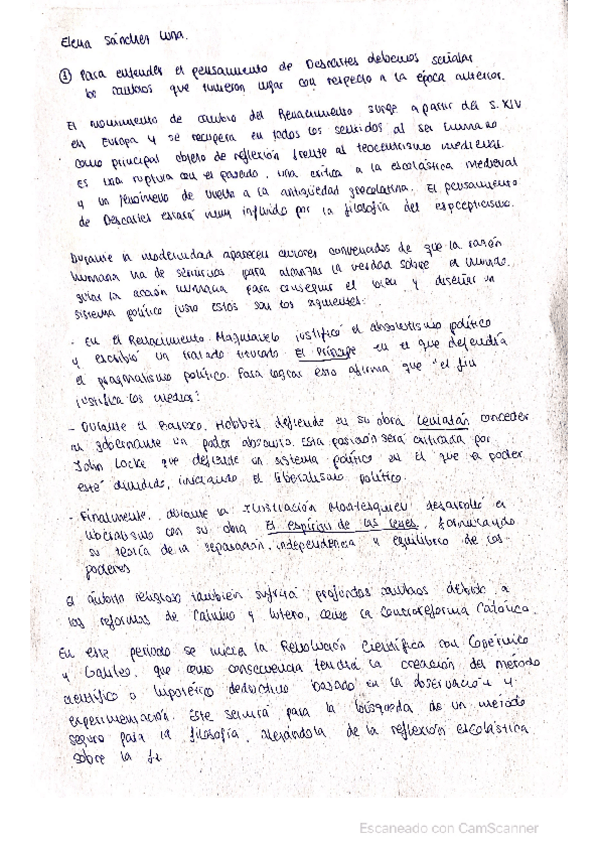 Elena Sánchez Luna.
① Para entender el pensamiento de Descartes debemos señalar
los cambios que tuvieron lugar con respecto a la época anterior.
El movimiento de cambio del Renacimiento surge a partir del S. XIV
en Europa y se recupera en todos los sentidos al ser humano
como principal objeto de reflexión frente al teocentrismo medieval.
Es una ruptura con el pasado, una crítica a la escolástica medieval
y un fenómeno de vuelta a la antigüedad grecolatina. El pensamiento
de Descartes estará muy influido por la filosofía del escepticismo.
Durante la modernidad aparecen autores convencidos de que la razón
humana ha de servirnos para alcanzar la verdad sobre el mundo,
guiar la acción humana para conseguir el bien y diseñar un
sistema político justo estos son los siguientes:
- En el Renacimiento Maquiavelo justificó el absolutismo político
y escribió un tratado titulado El Príncipe en el que defendía
el pragmatismo político. Para lograr esto afirma que "el fin
justifica los medios!
- Durante el Barroco, Hobbes, defiende en su obra Leviatán conceder
al gobernante un poder absoluto. Esta posición será criticada por
John Locke que defiende un sistema político en el que el poder
esté dividido, iniciando el liberalismo político.
- Finalmente, durante la Ilustración Montesquieu desarrolló el
liberalismo con su obra El espíritu de las leyes, formulando
su teoría de la separación, independencia y equilibrio de los
poderes
El ámbito religioso también sufrirá profundos cambios debido a
las reformas de Calvino y Lutero, como la Contrarreforma Católica.
En este periodo se inicia la Revolución Científica con Copérnico
y Galileo, que como consecuencia tendrá la creación del método
científico o hipotético deductivo basado en la observación y
experimentación. Este servirá para la búsqueda de un método
seguro para la filosofía, alejándola de la reflexión escolástica
sobre la fe
Escaneado con CamScanner